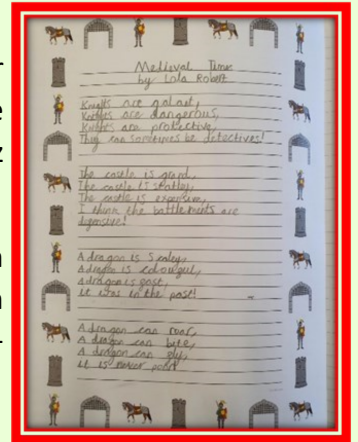 Medieval Time
by Lola Robert
Knights are galant,
Knights are dangerous,
Knights are protective,
They can sometimes be detectives!
The castle is grand,
The castle is
The castle is expensive,
I think the battlements are
A dragon is Scaley,
A dragon is colourful,
A dragon is
it was in the past!
A dragon can roar,
A dragon can bite,
A dragon can fly,
it is never